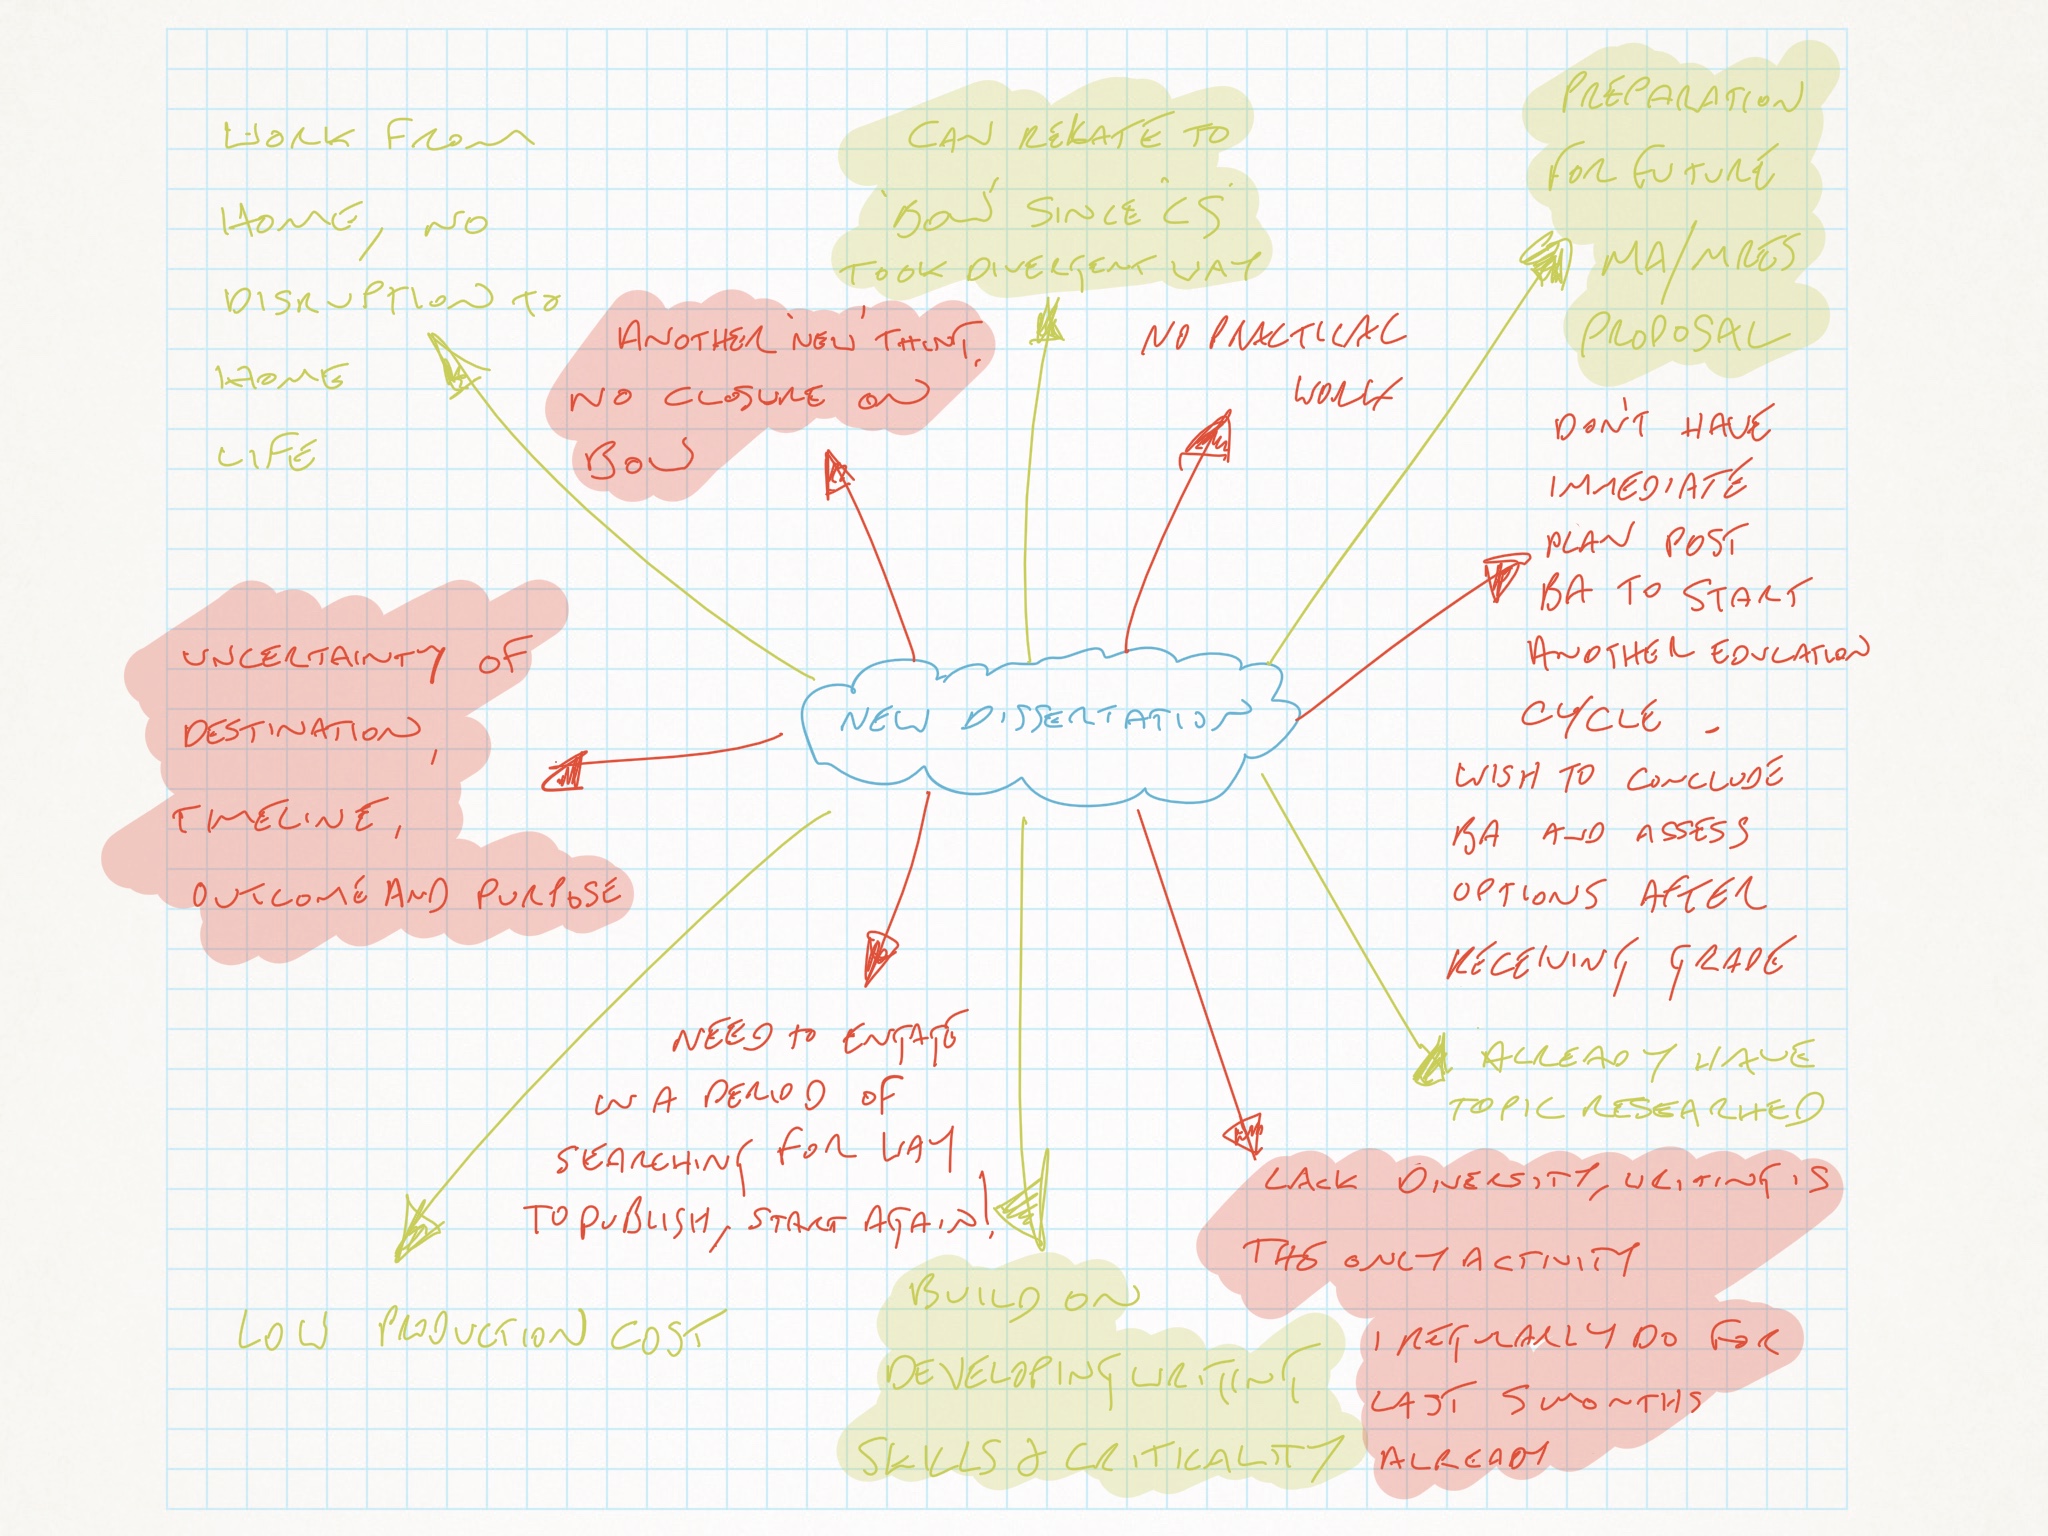 WORK FROM
HOME, NO
DISRUPTION TO
HOME
LIFE
ANOTHER 'NEW' THING,
NO CLOSURE ON
BOW
CAN REKATE TO
'BOW' SINCE 'CS'
TOOK DIVERGENT WAY
NO PRACTICAL
WORK
PREPARATION
FOR FUTURE
MA/MRES
PROPOSAL
DON'T HAVE
IMMEDIATE
PLAN POST
BA TO START
ANOTHER EDUCATION
CYCLE.
WISH TO CONCLUDE
BA AND ASSESS
OPTIONS AFTER
RECEIVING GRADE
NEW DISSERTATION
UNCERTAINTY OF
DESTINATION,
TIMELINE,
OUTCOME AND PURPOSE
NEED TO ENGAGE
IN A PERIOD OF
SEARCHING FOR WAY
TO PUBLISH, START AGAIN!
ALREADY HAVE
TOPIC RESEARHED
LACK DIVERSITY, WRITING IS
THE ONLY ACTIVITY
I REGULARLY DO FOR
LAST 5 MONTHS
ALREADY
LOW PRODUCTION COST
BUILD ON
DEVELOPING WRITING
SKILLS & CRITICALITY